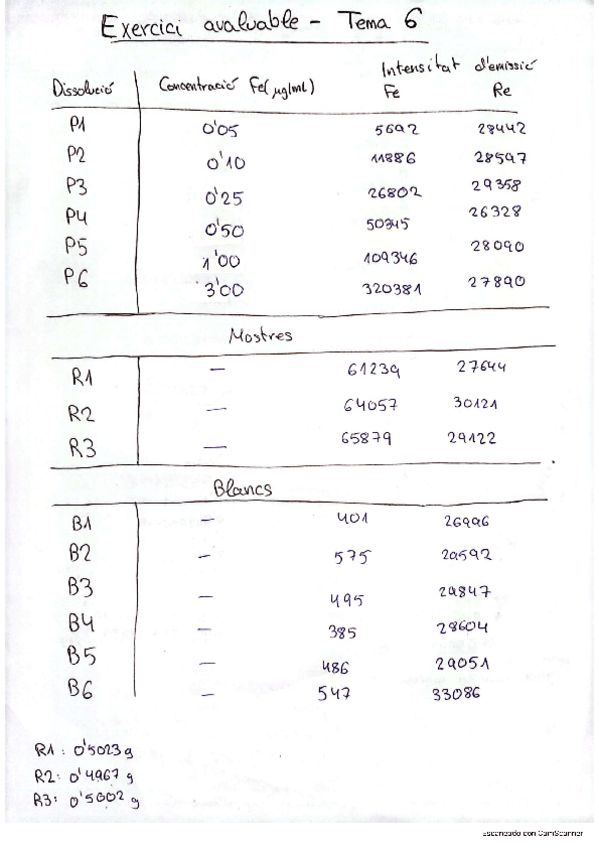 Exercici avaluable - Tema 6
Intensitat d'emissió
Dissolució Concentració Fe (µg/ml) Fe Re
P1 0'05 5692 28442
P2 0'10 11886 28597
P3 0'25 26802 29358
P4 0'50 50345 26328
P5 1'00 109346 28090
P6 3'00 320381 27890
Mostres
R1 — 61239 27644
R2 — 64057 30121
R3 — 65879 29122
Blancs
B1 — 401 26996
B2 — 575 29592
B3 — 495 29847
B4 — 385 28604
B5 — 486 29051
B6 — 547 33086
R1: 0'5023 g
R2: 0'4967 g
R3: 0'5002 g
Escaneado con CamScanner